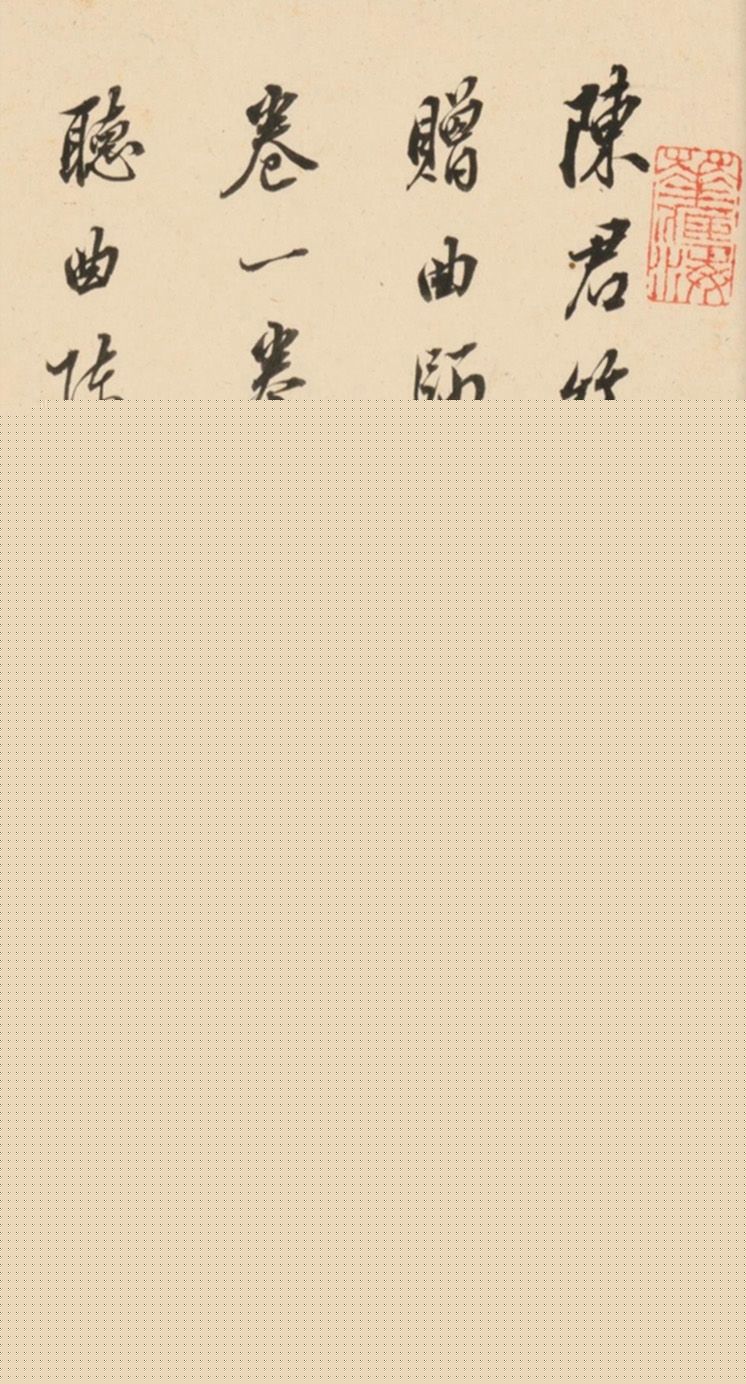 陳君
贈曲師
卷一卷
聽曲